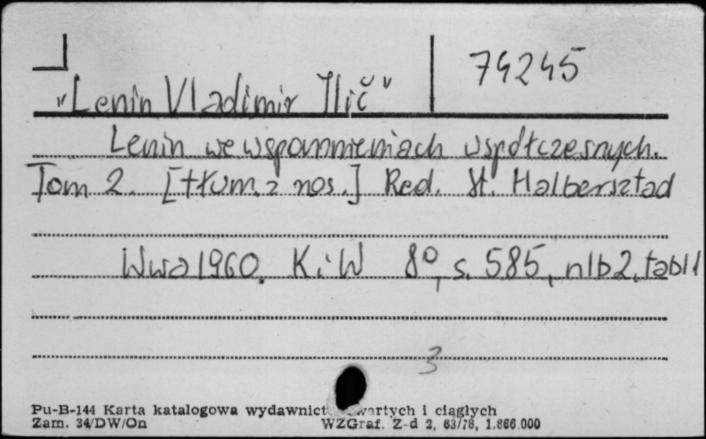 74245
"Lenin Vladimir Ilič"
Lenin we wspomnieniach współczesnych.
Tom 2. [tłum. z ros.] Red. St. Halbersztad
Wwa 1960. KiW 8º, s. 585, nlb 2, tabl 1
3
Pu-B-144 Karta katalogowa wydawnict i ciągłych
Zam. 34/DW/On WZGraf. Z-d 2, 63/78, 1.866.000